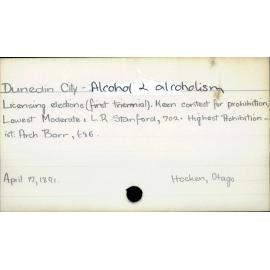 Dunedin City - Alcohol & alcoholism
Licensing elections (first triennial). Keen contest for prohibition,
Lowest Moderate, L.R. Stanford, 702. Highest Prohibition-
ist: Arch Barr, 686.
April 17, 1891.
Hocken, Otago